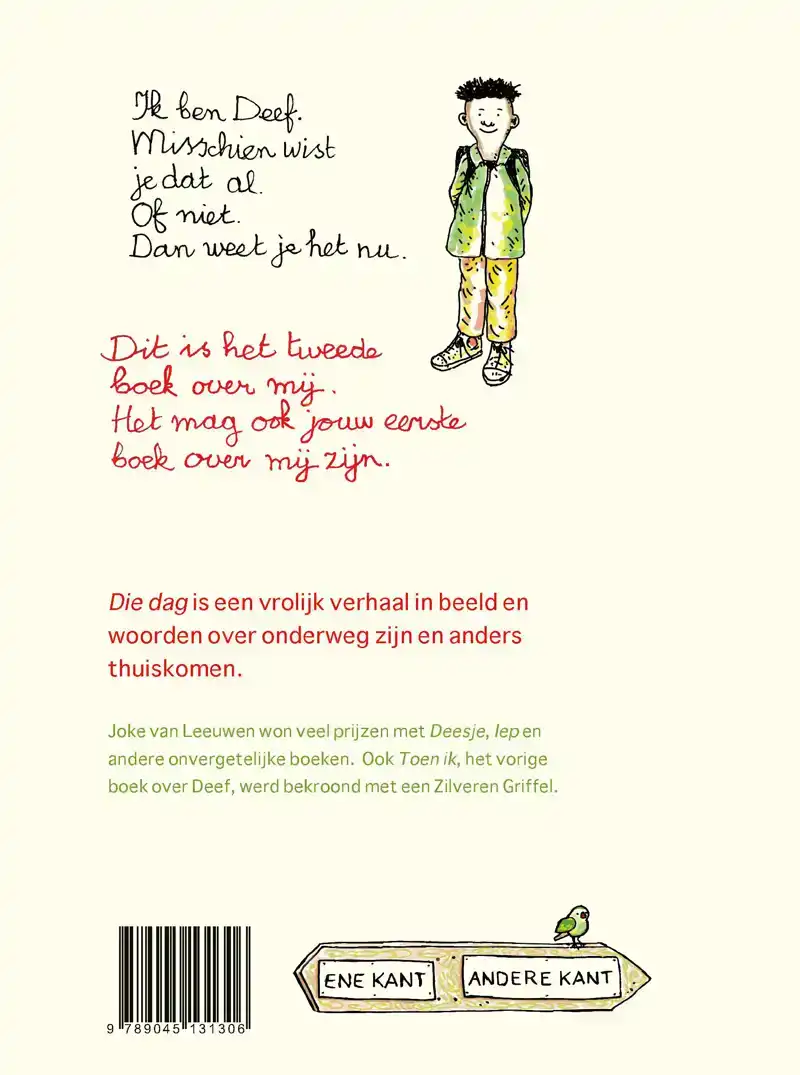 Ik ben Deef.
Misschien wist
je dat al.
Of niet.
Dan weet je het nu.
Dit is het tweede
boek over mij.
Het mag ook jouw eerste
boek over mij zijn.
Die dag is een vrolijk verhaal in beeld en
woorden over onderweg zijn en anders
thuiskomen.
Joke van Leeuwen won veel prijzen met Deesje, Iep en
andere onvergetelijke boeken. Ook Toen ik, het vorige
boek over Deef, werd bekroond met een Zilveren Griffel.
ENE KANT ANDERE KANT
9 789045 131306